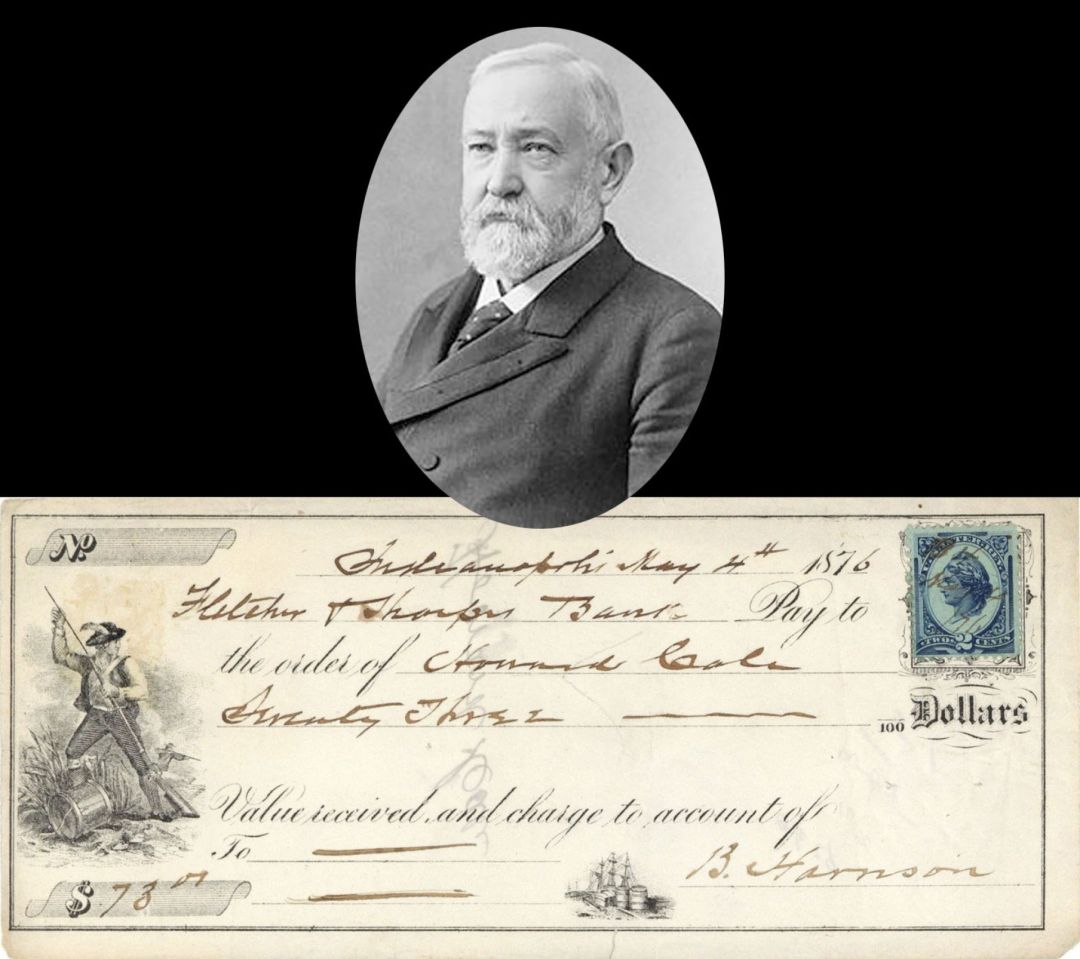 No
Indianapolis May 4th 1876
Fletcher & Sharpes Bank Pay to
the order of Howard Cale
Seventy Three
100 Dollars
Value received and charge to account of
To
$ 73 00
B. Harrison
U.S. INTER. REV.
TWO 2 CENTS